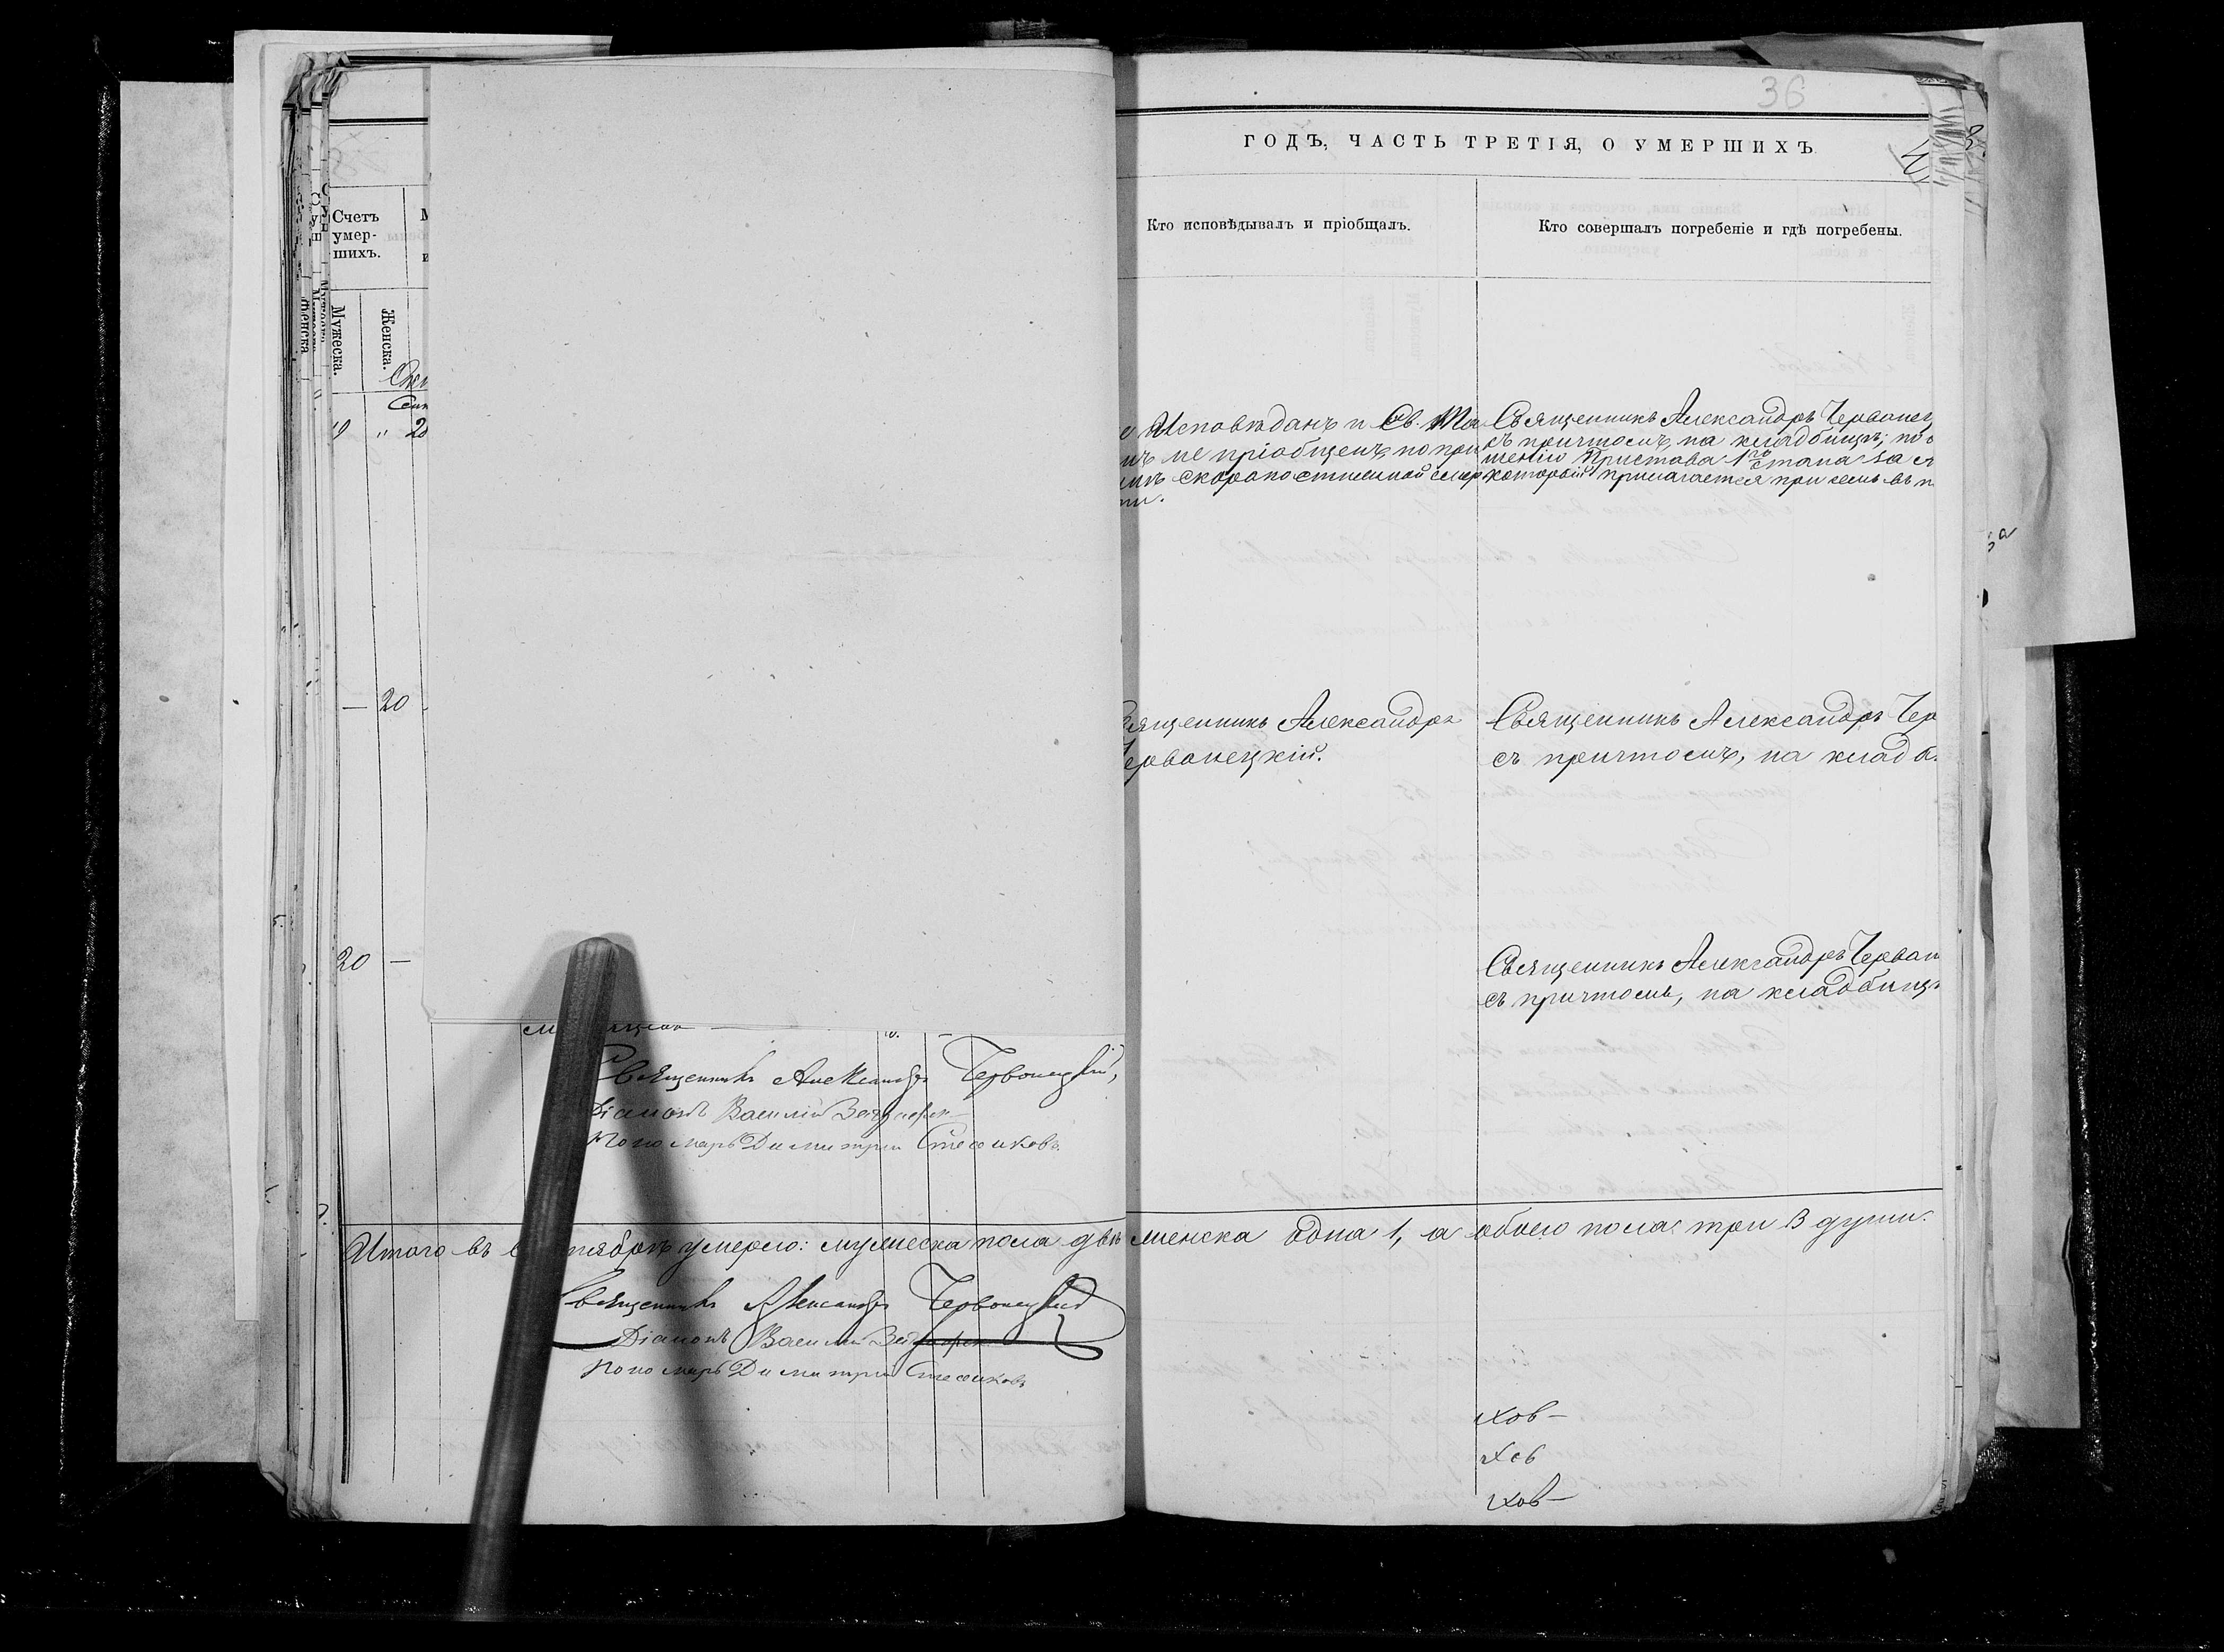 36
ГОДЪ, ЧАСТЬ ТРЕТІЯ, О УМЕРШИХЪ
Счетъ
умер-
шихъ.
Мужеска.
Женска.
Кто исповѣдывалъ и пріобщалъ.
Кто совершалъ погребеніе и гдѣ погребены.
20
Исповѣданъ и Св. Та
не пріобщенъ по при
скоропостижной смер
Священникъ Александръ Червонец
съ причтомъ, на кладбищѣ; по
шенію Пристава 1го стана за
который прилагается при семъ въ
20
Священникъ Александръ
Червонецкій.
Священникъ Александръ Чер
съ причтомъ, на кладб
20
Священникъ Александръ Червон
съ причтомъ, на кладбищѣ
Священникъ Александръ Червонецкій,
Діаконъ Василій
Пономарь Димитрій
Итого въ Сентябрѣ умерло: мужеска пола двѣ женска одна 1, а обоего пола три 3 души.
Священникъ Александръ Червонецкій
Діаконъ Василій
Пономарь Димитрій
ховъ
ховъ
ховъ